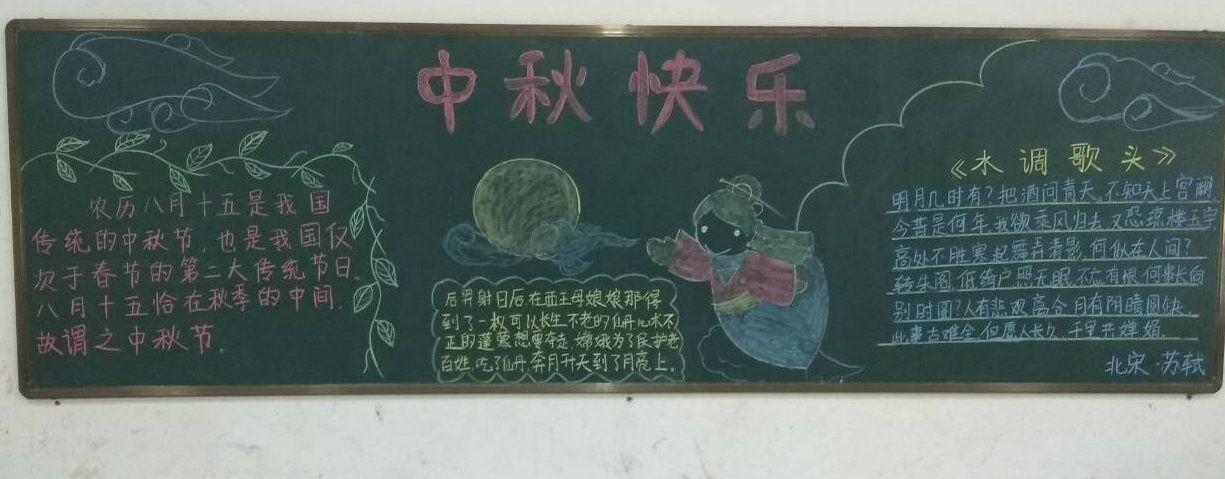 中秋快乐
农历八月十五是我国
传统的中秋节,也是我国仅
次于春节的第二大传统节日.
八月十五恰在秋季的中间.
故谓之中秋节.
后羿射日后在西王母娘娘那得
到了一枚可以长生不老的仙丹心术不
正的蓬蒙想要夺走.嫦娥为了保护老
百姓.吃了仙丹.奔月升天到了月亮上.
《水调歌头》
明月几时有?把酒问青天.不知天上宫阙
今昔是何年.我欲乘风归去.又恐琼楼玉宇
高处不胜寒.起舞弄清影,何似在人间?
转朱阁.低绮户.照无眠.不应有恨.何事长向
别时圆?人有悲欢离合.月有阴晴圆缺.
此事古难全.但愿人长久,千里共婵娟.
北宋·苏轼